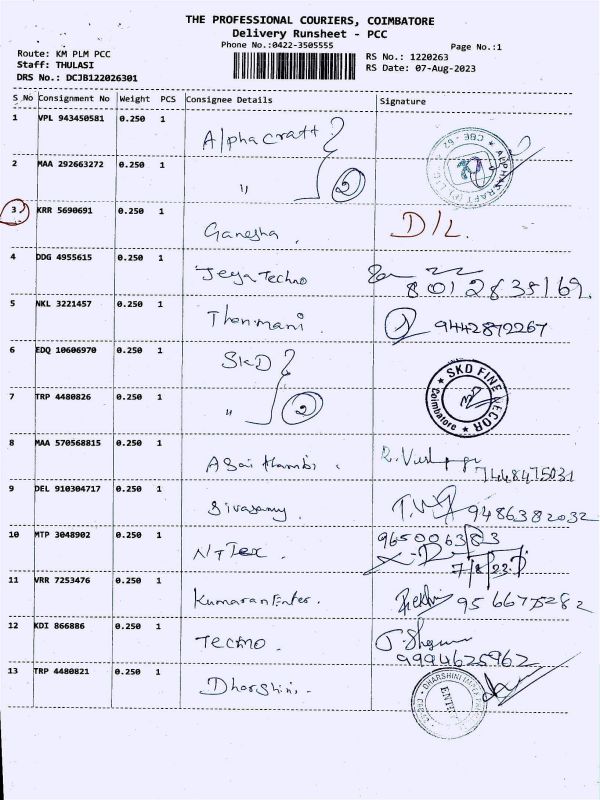 THE PROFESSIONAL COURIERS, COIMBATORE
Delivery Runsheet - PCC
Phone No.:0422-3505555
Page No.:1
Route: KM PLM PCC
Staff: THULASI
DRS No.: DCJB122026301
RS No.: 1220263
RS Date: 07-Aug-2023
S_No Consignment No Weight PCS Consignee Details Signature
1 VPL 943450581 0.250 1 Alphacraft
2 MAA 292663272 0.250 1 " 2
CBE-62
3 KRR 5690691 0.250 1 Ganesha. D/L.
4 DDG 4955615 0.250 1 Jeya Techno
8012835169.
5 NKL 3221457 0.250 1 Thenmani 9442872267
6 EDQ 10606970 0.250 1 SKD
7 TRP 4480826 0.250 1 " 2
SKD FINE DECOR
Coimbatore
8 MAA 570568815 0.250 1
7448475031
9 DEL 910304717 0.250 1 Sivasamy. 9486382032
10 MTP 3048902 0.250 1 NT Tex. 965006383
7/8/23
11 VRR 7253476 0.250 1 Kumaran Enter. 9566775282
12 KDI 866886 0.250 1 Techno.
9994625962
13 TRP 4480821 0.250 1 Dharshini.
DHARSHINI
ENTRY